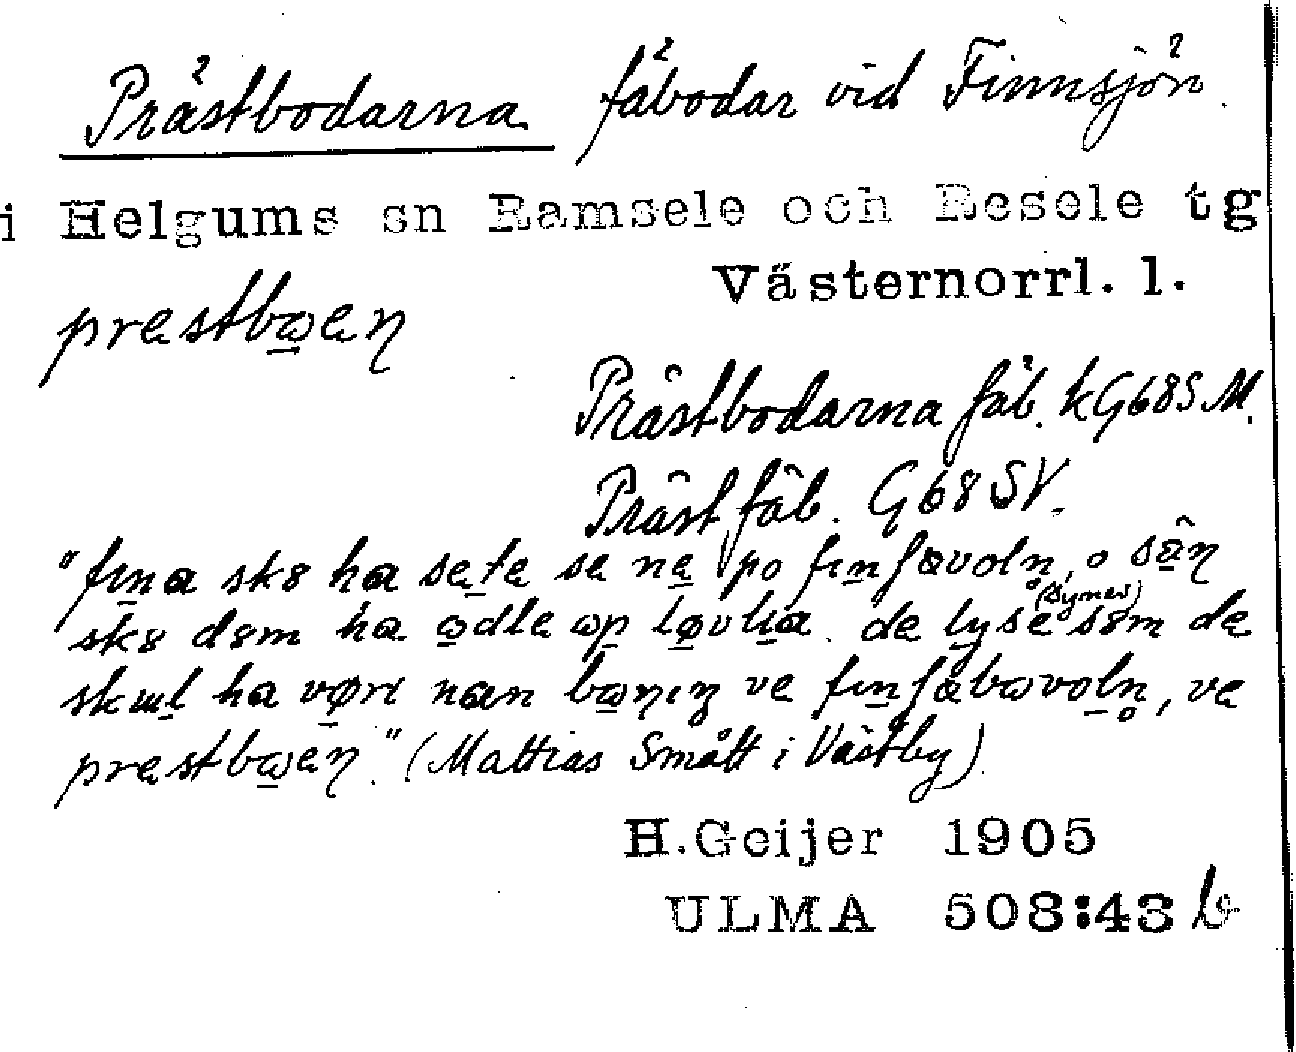 Prästbodarna fäbodar vid Finnsjön.
i Helgums sn Ramsele och Resele tg
Västernorrl. l.
prestbꞷen
Prästbodarna fäb. k G68S M.
Prästfäb. G68 SV.
"fina sk8 ha sete se ne po finfavoln, o sän
(synes)
sk8 d8m ha ꞷdle ꞷp løvlia. de lyse s8m de
skɯl ha vøri nan bꞷniŋ ve finfäbꞷvoln, ve
prestbꞷen." (Mattias Smått i Västby).
H.Geijer 1905
ULMA 508:43 b